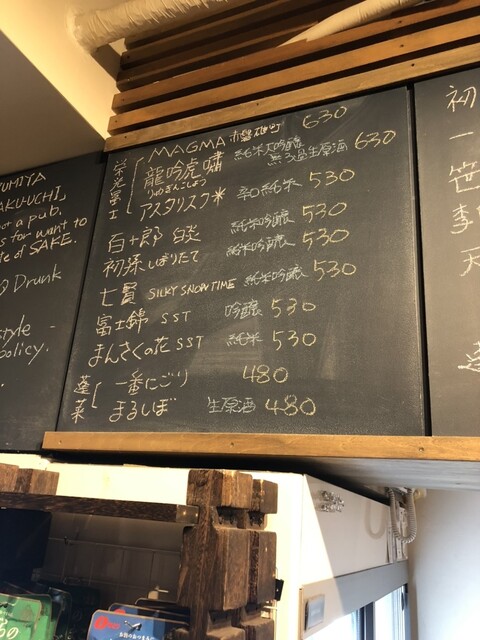 YUMITA
KAKU-UCHI
not a pub.
s for want to
te of SAKE.
Drunk
style -
policy.
栄光冨士
MAGMA 赤磐雄町 630
龍吟虎嘯 純米大吟醸 無ろ過生原酒 630
りゅうぎんこしょう
アスタリスク* 辛口純米 530
百十郎 白炎 純米吟醸 530
初孫 しぼりたて 純米吟醸 530
七賢 SILKY SNOW TIME 純米吟醸 530
富士錦 SST 吟醸 530
まんさくの花 SST 純米 530
蓬莱
一番にごり 480
まるいぼ 生原酒 480
初
一
笹
李
天
蓬